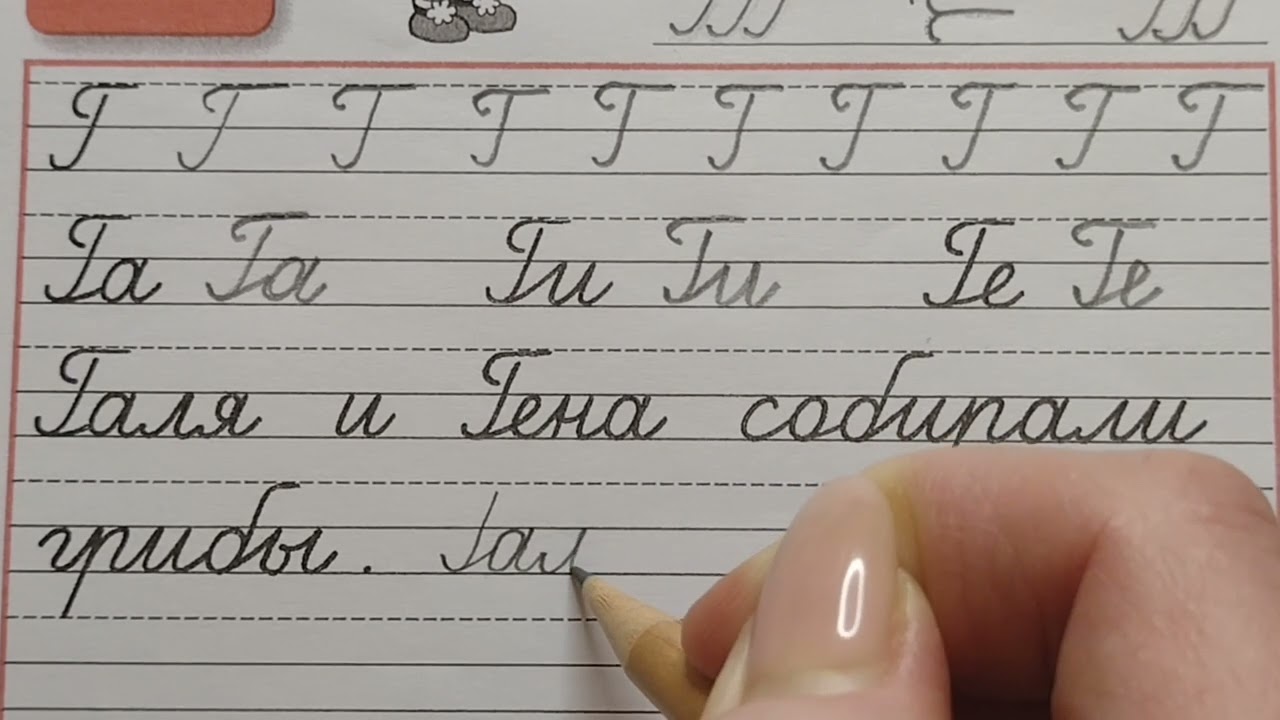 Г Г Г Г Г Г Г Г Г Г
Га Га Ги Ги Ге Ге
Галя и Гена собирали
грибы. Гал